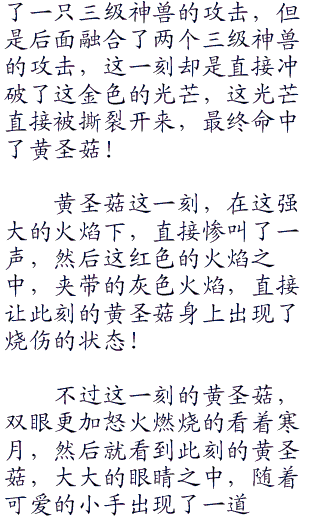 了一只三级神兽的攻击，但
是后面融合了两个三级神兽
的攻击，这一刻却是直接冲
破了这金色的光芒，这光芒
直接被撕裂开来，最终命中
了黄圣菇！
黄圣菇这一刻，在这强
大的火焰下，直接惨叫了一
声，然后这红色的火焰之
中，夹带的灰色火焰，直接
让此刻的黄圣菇身上出现了
烧伤的状态！
不过这一刻的黄圣菇，
双眼更加怒火燃烧的看着寒
月，然后就看到此刻的黄圣
菇，大大的眼睛之中，随着
可爱的小手出现了一道